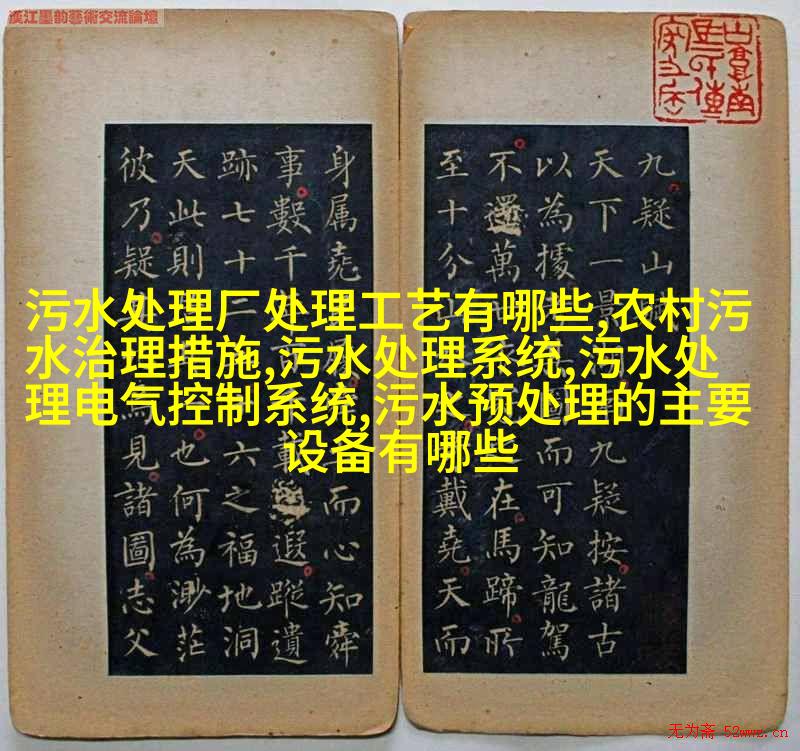 漢江墨韵藝術交流論壇
九疑山
天下一景九疑按諸古
以為據圖而可知龍駕
不還萬在馬蹄所
至十分戴堯天而
身属堯而心知舜
事數千遐蹤遺
跡七十二六之福地洞
天此則也何為渺茫
彼乃疑為見諸圖志父
污水处理厂处理工艺有哪些,农村污
水治理措施,污水处理系统,污水处
理电气控制系统,污水预处理的主要
设备有哪些
无为斋 52wwz.cn